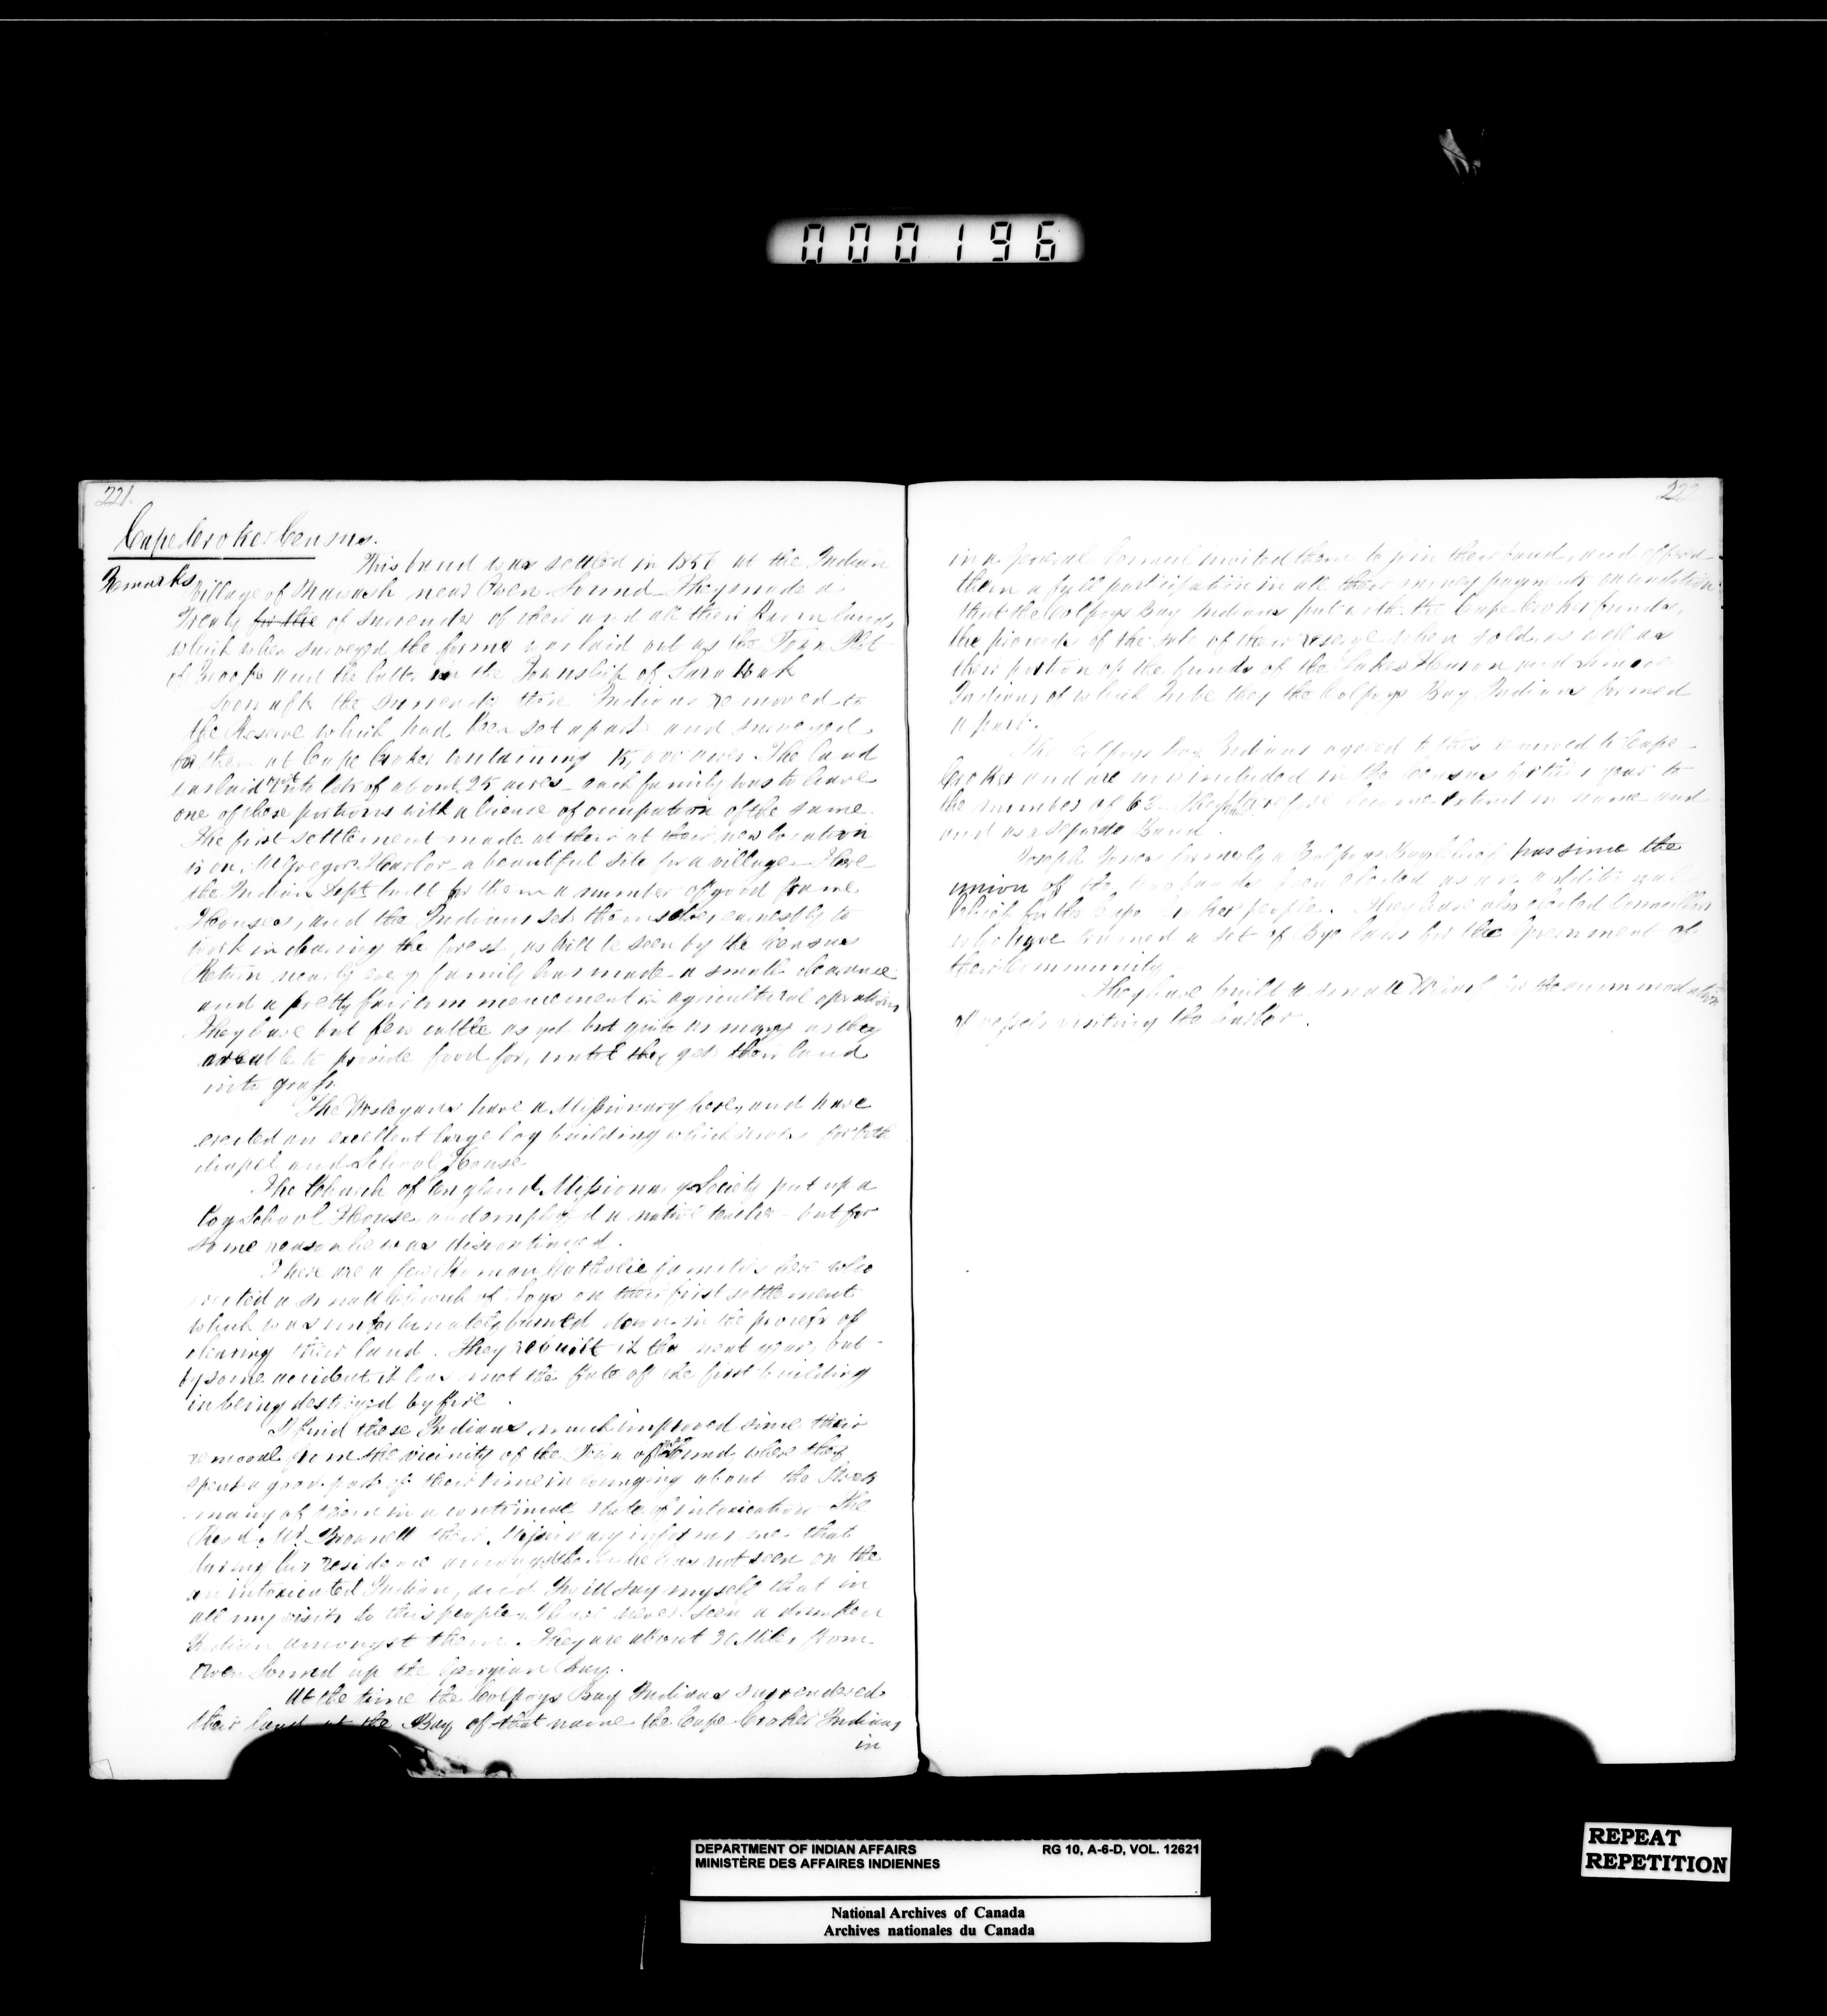 000196
221.
Cape Croker Census.
Remarks
This band was settled in 1856 at the Indian
Village of Nawash near Owen Sound. They made a
Treaty for the of surrender of their and all their lands,
which when surveyed the former was laid out as the Town Plot
of Brooke and the latter in the Township of Sarawak
Soon after the surrender these Indians removed to
the Reserve which had been set apart and surveyed
for them at Cape Croker containing 15,000 acres. The land
was laid out into lots of about 25 acres - each family was to have
one of these portions with a licence of occupation of the same.
The first settlement made at their at their new location
is on McGregor Harbor a beautiful site for a village - Here
the Indian Dept. built for them a number of good frame
Houses, and the Indians set themselves earnestly to
work in clearing the forest, as will be seen by the Census
Return nearly every family has made a small clearance
and a pretty fair commencement in agricultural operations
They have but few cattle as yet but quite as many as they
are able to provide food for, until they get their land
into grass.
The Wesleyans have a Missionary here, and have
erected an excellent large log building which serves for both
chapel and School House
The Church of England Missionary Society put up a
Log School House and employed a native teacher - but for
some reason he was discontinued.
There are a few Roman Catholic families here who
erected a small Church of Logs on their first settlement
which was unfortunately burned down in the process of
clearing their land. They rebuilt it the next year, but
by some accident it has met the fate of the first building
in being destroyed by fire.
I find these Indians much improved since their
removal from the vicinity of the Town of Owen Sound, where they
spent a good part of their time in lounging about the Streets
many of them in a continual state of intoxication - The
Revd. Mr. Brownell their Missionary informs me that
during his residence amongst them he has not seen on the
an intoxicated Indian, and I will say myself that in
all my visits to this people, I have never seen a drunken
Indian amongst them. They are about 30 Miles from
Owen Sound up the Georgian Bay.
At the time the Colpoys Bay Indians surrendered
their land at the Bay of that name the Cape Croker Indians
in
222
in a General Council invited them to join their band, and offered
them a full participation in all their money payments on condition
that the Colpoys Bay Indians put with the Cape Croker funds,
the proceeds of the sale of their reserve when sold, as well as
their portion of the funds of the Lakes Huron and Simcoe
Indians of which Tribe they the Colpoys Bay Indians formed
a part.
The Colpoys Bay Indians agreed to this removed to Cape
Croker and are now included in the Census for this year to
the number of 63. They therefore become extinct in name and
and as a separate Band.
Joseph Jones formerly a Colpoys Bay Chief has since the
union of the two bands been elected as an additional
Chief for the Cape Croker people. They have also elected Councillors
who have framed a set of Bye laws for the Government of
their Community
They have built a small Wharf for the accommodation
of vessels visiting the harbor.
DEPARTMENT OF INDIAN AFFAIRS RG 10, A-6-D, VOL. 12621
MINISTÈRE DES AFFAIRES INDIENNES
National Archives of Canada
Archives nationales du Canada
REPEAT
REPETITION